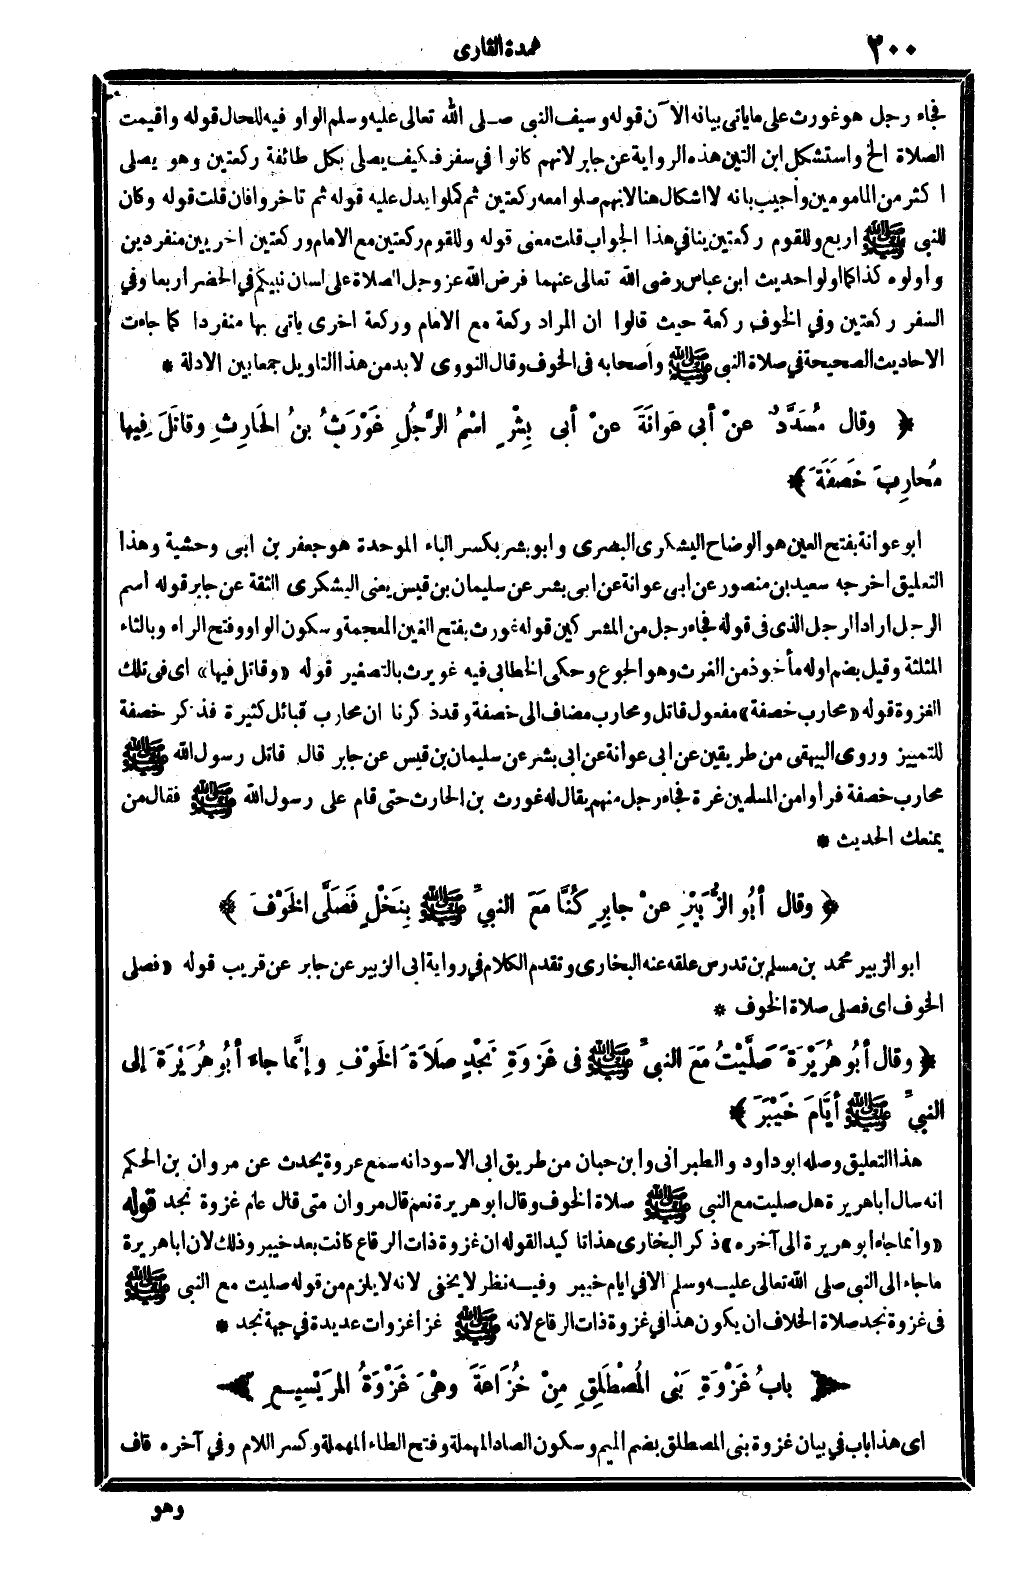 ٢٠٠
عمدة القارى
فجاء رجل هو غورث على ماياتى بيانه الآن قوله وسيف النبى صلى الله تعالى عليه وسلم الواو فيه للحال قوله واقيمت
الصلاة الخ واستشكل ابن التين هذه الرواية عن جابر لانهم كانوا في سفر فكيف يصلى بكل طائفة ركعتين وهو يصلى
اكثر من المامومين وأجيب بانه لا اشكال هنا لانهم صلوا معه ركعتين ثم كملوا يدل عليه قوله ثم تاخروا فان قلت قوله وكان
للنبى ﷺ اربع وللقوم ركعتين ينافي هذا الجواب قلت معنى قوله وللقوم ركعتين مع الامام وركعتين اخريين منفردين
وأولوه كذا كما اولوا حديث ابن عباس رضى الله تعالى عنهما فرض الله عز وجل الصلاة على لسان نبيكم في الحضر أربعا وفي
السفر ركعتين وفي الخوف ركعة حيث قالوا ان المراد ركعة مع الامام وركعة اخرى ياتى بها منفردا كما جاءت
الاحاديث الصحيحة في صلاة النبى ﷺ وأصحابه فى الخوف وقال النووى لا بد من هذا التاويل جمعا بين الادلة *
﴿ وقال مُسَدَّدٌ عنْ أبي عَوَانَةَ عنْ أبى بِشْرٍ اسْمُ الرَّجُلِ غَوْرَثُ بنُ الحَارِثِ وقاتَلَ فِيها
مُحارِبَ خَصَفَةَ ﴾
ابو عوانة بفتح العين هو الوضاح اليشكرى البصرى وابو بشر بكسر الباء الموحدة هو جعفر بن ابى وحشية وهذا
التعليق اخرجه سعيد بن منصور عن ابى عوانة عن ابى بشر عن سليمان بن قيس يعنى اليشكرى الثقة عن جابر قوله اسم
الرجل اراد الرجل الذى فى قوله فجاء رجل من المشركين قوله غورث بفتح الغين المعجمة وسكون الواو وفتح الراء وبالثاء
المثلثة وقيل بضم اوله مأخوذ من الغرث وهو الجوع وحكى الخطابى فيه غويرث بالتصغير قوله «وقاتل فيها» اى فى تلك
الغزوة قوله «محارب خصفة» مفعول قاتل ومحارب مضاف الى خصفة وقد ذكرنا ان محارب قبائل كثيرة فذكر خصفة
للتمييز وروى البيهقى من طريقين عن ابى عوانة عن ابى بشر عن سليمان بن قيس عن جابر قال قاتل رسول الله ﷺ
محارب خصفة فرأوا من المسلمين غرة فجاء رجل منهم يقال له غورث بن الحارث حتى قام على رسول الله ﷺ فقال من
يمنعك الحديث *
﴿ وقال أبُو الزُّبَيْرِ عنْ جابِرٍ كُنَّا مَعَ النبيِّ ﷺ بِنَخْلٍ فَصَلَّى الخَوْفَ ﴾
ابو الزبير محمد بن مسلم بن تدرس علقه عنه البخارى وتقدم الكلام في رواية ابى الزبير عن جابر عن قريب قوله «فصلى
الخوف اى فصلى صلاة الخوف *
﴿ وقال أبُو هُرَيْرَةَ صَلَّيْتُ مَعَ النبيِّ ﷺ فى غَزْوَةِ نَجْدٍ صَلَاةَ الخَوْفِ وإنَّما جاءَ أبُو هُرَيْرَةَ إلى
النبيِّ ﷺ أيَّامَ خَيْبَرَ ﴾
هذا التعليق وصله ابو داود والطبرانى وابن حبان من طريق ابى الاسود انه سمع عروة يحدث عن مروان بن الحكم
انه سال أبا هريرة هل صليت مع النبى ﷺ صلاة الخوف وقال ابو هريرة نعم قال مروان متى قال عام غزوة نجد قوله
«وانما جاء ابو هريرة الى آخره» ذكر البخارى هذا تا كيدا لقوله ان غزوة ذات الرقاع كانت بعد خيبر وذلك لان اباهريرة
ماجاء الى النبى صلى الله تعالى عليه وسلم الا في ايام خيبر وفيه نظر لا يخفى لانه لا يلزم من قوله صليت مع النبى ﷺ
فى غزوة نجد صلاة الخلاف ان يكون هذا في غزوة ذات الرقاع لانه ﷺ غزا غزوات عديدة في جهة نجد *
﴿ بابُ غَزْوَةِ بَنِى المُصْطَلِقِ مِنْ خُزَاعَةَ وهْىَ غَزْوَةُ المُرَيْسِيعِ ﴾
اى هذا باب في بيان غزوة بنى المصطلق بضم الميم وسكون الصاد المهملة وفتح الطاء المهملة وكسر اللام وفي آخره قاف
وهو